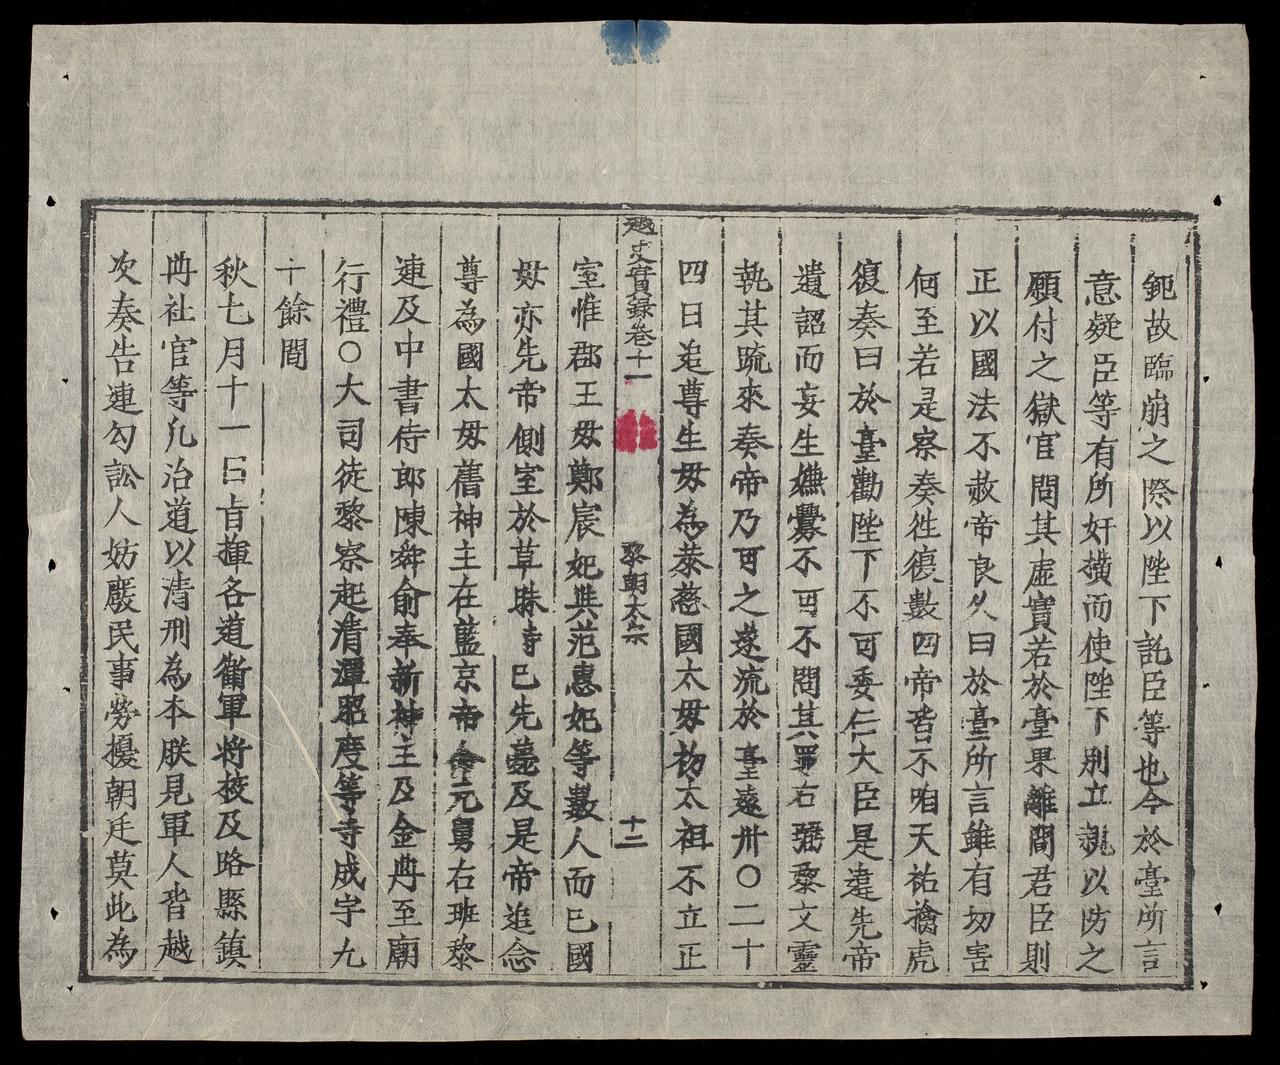 鈍故臨崩之際以陛下託臣等也今於臺所言
意疑臣等有所奸横而使陛下別立親以防之
願付之獄官問其虛實若於臺果離間君臣則
正以國法不赦帝良久曰於臺所言雖有切害
何至若是察奏徃復數四帝皆不咱天祐擒虎
復奏曰於臺勸陛下不可委仁大臣是違先帝
遺詔而妄生嫌釁不可不問其罪右弼黎文靈
執其疏來奏帝乃可之遂流於臺遠州〇二十
四日追尊生毋為恭慈國太毋初太祖不立正
越史實録卷十一 黎朝太宗 十二
室惟郡王毋鄭宸妃與范惠妃等數人而已國
毋亦先帝側室於草昧時已先薨及是帝追念
尊為國太毋舊神主在藍京帝命元舅右班黎
連及中書侍郎陳舜俞奉新神主及金冊至廟
行禮〇大司徒黎察起清潭昭度等寺成字九
十餘間
秋七月十一日㫖揮各道衞軍將校及路縣鎮
冊社官等凡治道以清刑為本朕見軍人皆越
次奏告連勾訟人妨廢民事勞擾朝廷莫此為